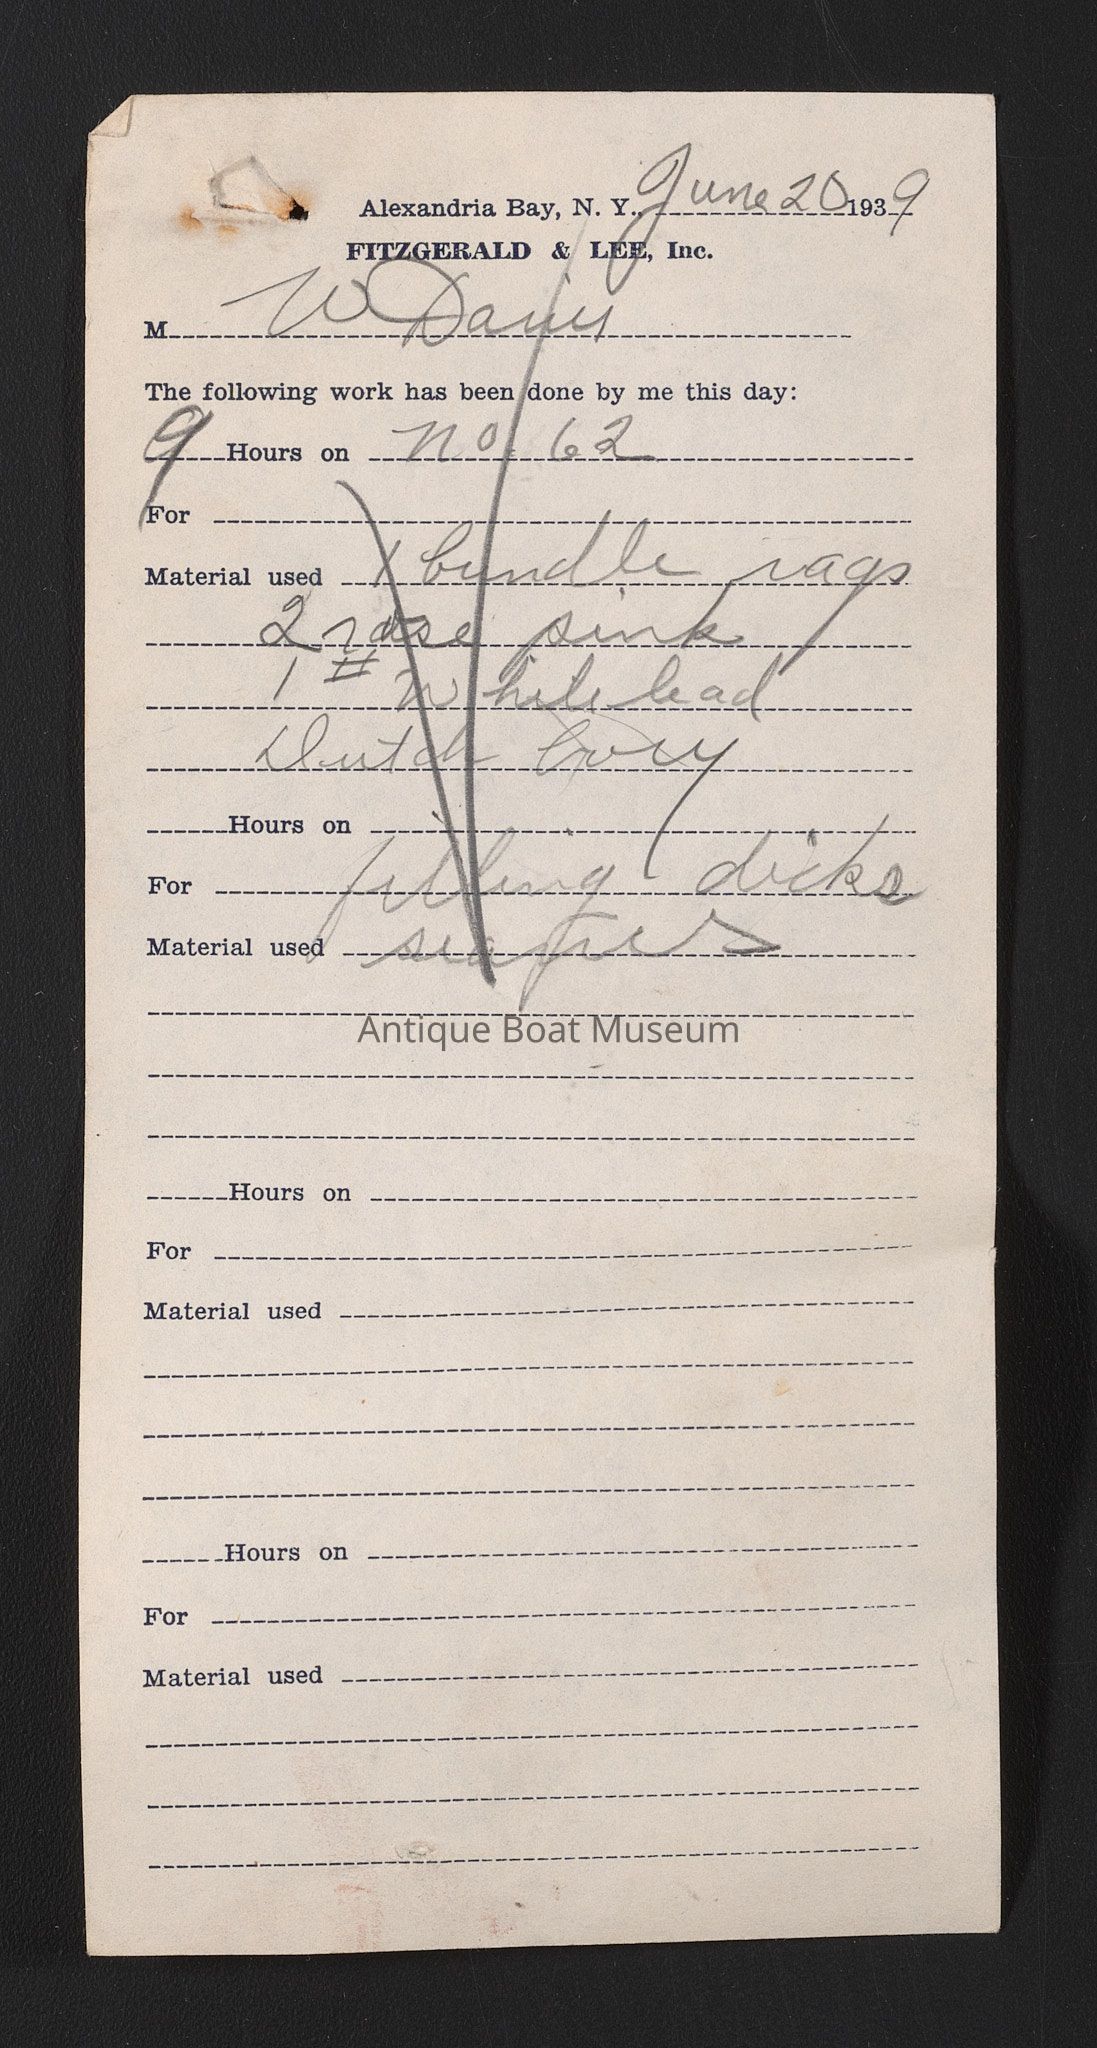 Alexandria Bay, N. Y. June 20 1939
FITZGERALD & LEE, Inc.
M W Davis
The following work has been done by me this day:
9 Hours on No. 62
For
Material used 1 bundle rags
2 rose pink
1 # White lead
Dutch
Hours on
For filling
Material used
Antique Boat Museum
Hours on
For
Material used
Hours on
For
Material used